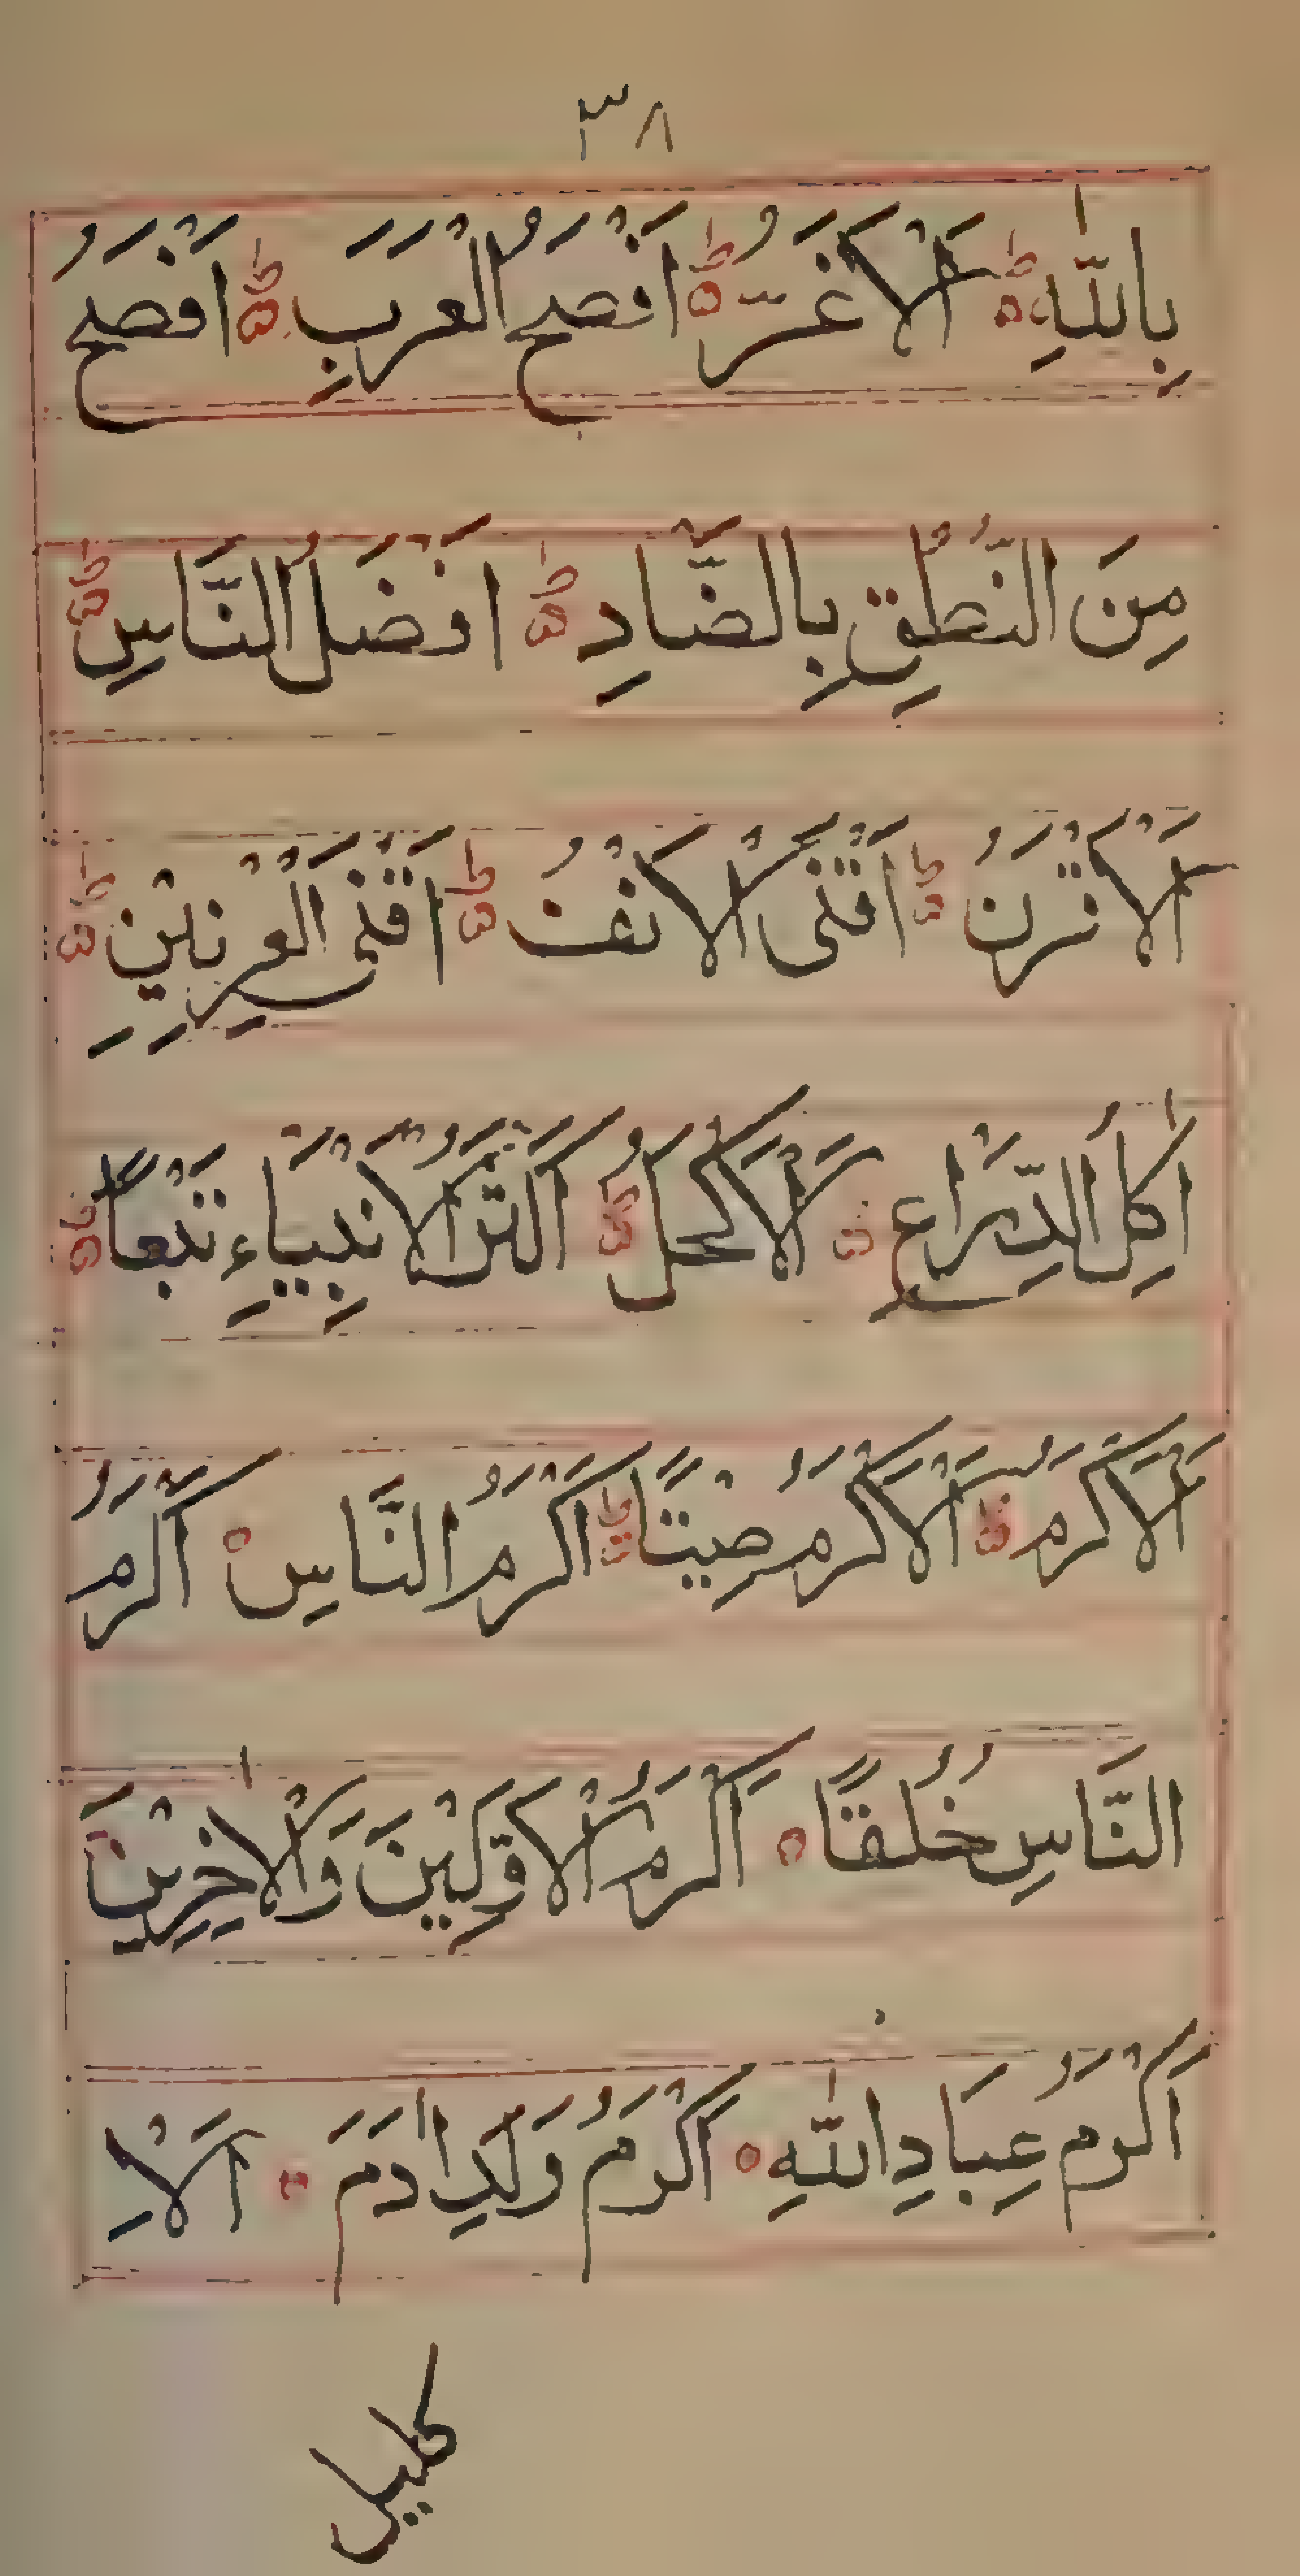 ٣٨
بِاللّٰهِ ؕ اَلْاَغَرُّ ؕ اَفْصَحُ الْعَرَبِ ؕ اَفْصَحُ
مِنَ النُّطْقِ بِالضَّادِ ؕ اَفْضَلُ النَّاسِ ؕ
اَلْاَقْرَنُ ؕ اَقْنَى الْاَنْفُ ؕ اَقْنَى الْعِرْنِيْنِ ؕ
اٰكِلُ الذِّرَاعِ اَلْاَكْحَلُ ؕ اَكْثَرُ الْاَنْبِيَاءِ تَبْعًا ؕ
اَلْاَكْرَمُ ؕ اَلْاَكْرَمُ صِيْتًا ؕ اَكْرَمُ النَّاسِ اَكْرَمُ
النَّاسِ خُلُقًا اَكْرَمُ الْاَوَّلِيْنَ وَالْاٰخِرِيْنَ
اَكْرَمُ عِبَادِ اللّٰهِ اَكْرَمُ وَلَدِ اٰدَمَ اَلْاِ
كليل